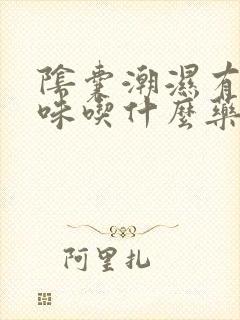 陰囊潮濕有
味喫什麼藥
阿里扎